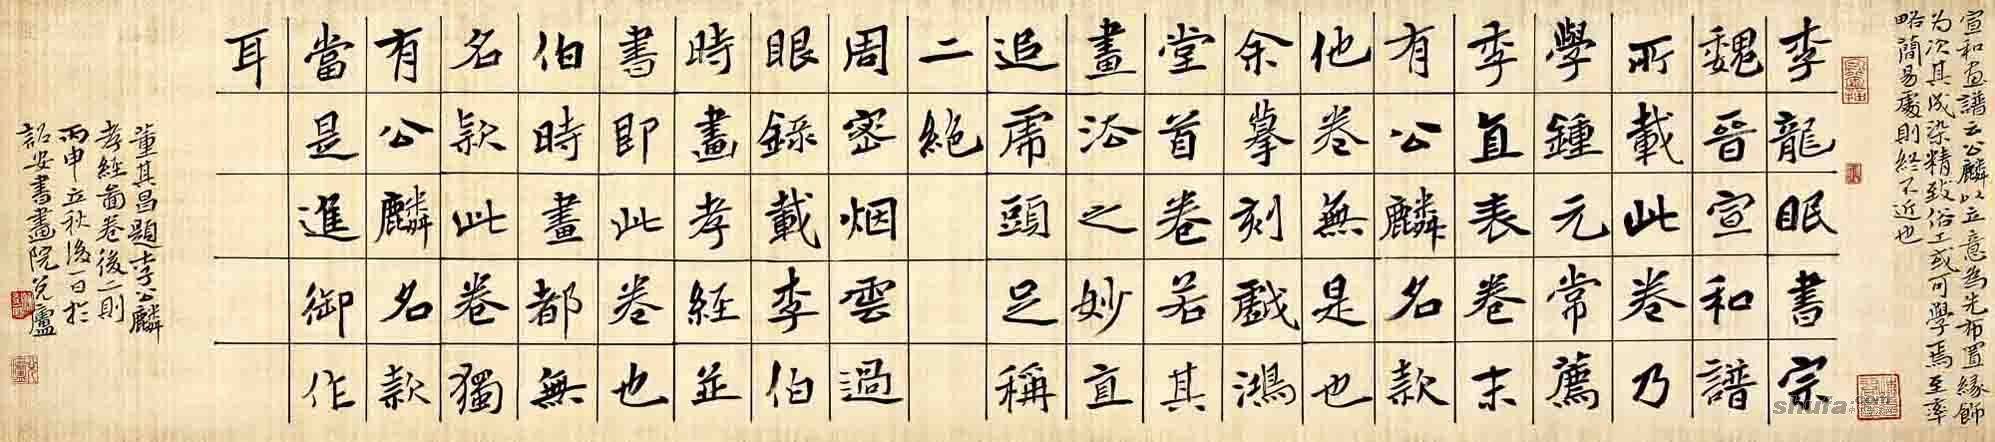 宣和画譜云公麟以立意為先布置緣飾
為次其成染精致俗工或可學焉至率
略簡易處則終不近也
李龍眠書宗
魏晉宣和譜
所載此卷乃
學鍾元常薦
季直表卷末
有公麟名款
他卷無是也
余摹刻戲鴻
堂首卷若其
畫法之妙直
追虎頭足稱
二絕
周密烟雲過
眼錄載李伯
時畫孝經並
書即此卷也
伯時畫都無
名款此卷獨
有公麟名款
當是進御作
耳
董其昌題李公麟
孝經圖卷後二則
丙申立秋後一日於
詔安書畫院
shufa.com